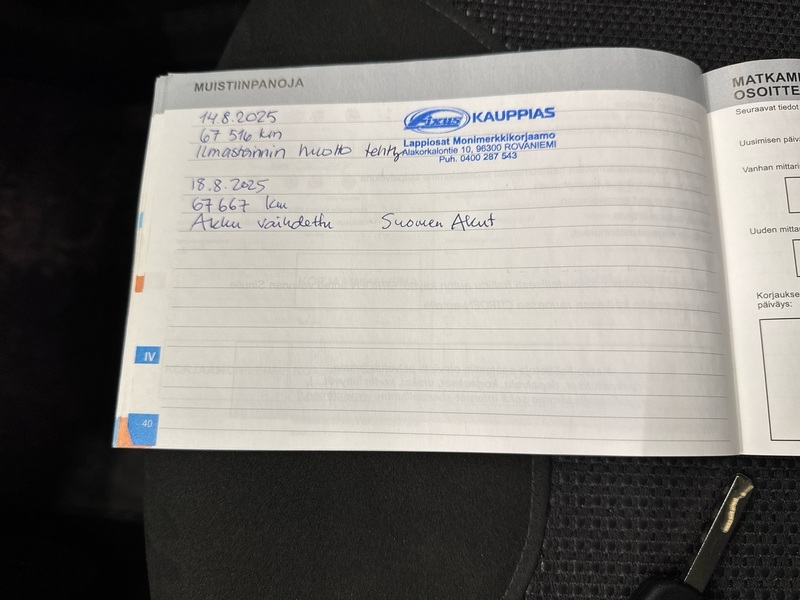 MUISTIINPANOJA
14.8.2025
67 516 km
Ilmastoinnin huolto tehty
Fixus KAUPPIAS
Lappiosat Monimerkkikorjaamo
Alakorkalontie 10, 96300 ROVANIEMI
Puh. 0400 287 543
18.8.2025
67 667 km
Akku vaihdettu Suomen Akut
IV
40
MATKAMI
OSOITTE
Seuraavat tiedot
Uusimisen päiv
Vanhan mittari
Uuden mitta
Korjaukse
päiväys: